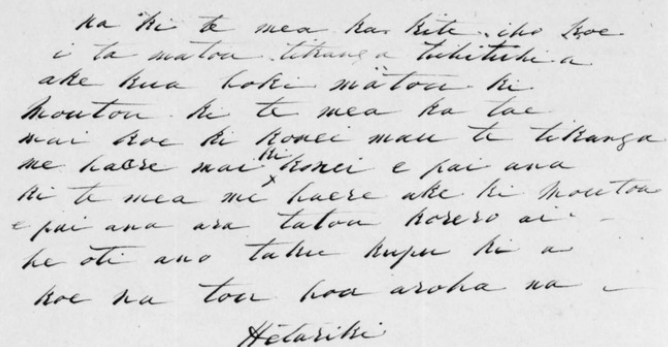 na ki te mea ka kite iho koe
i ta matou tikanga tuhituhi a
ake kua hoki matou ki
Moutou ki te mea ka tae
mai koe ki konei mau te tikanga
me haere mai ki konei e pai ana
ki te mea me haere ake ki Moutoa
e pai ana ara tatou korero ai -
he oti ano taku kupu ki a
koe na tou hoa aroha na -
Hetariki